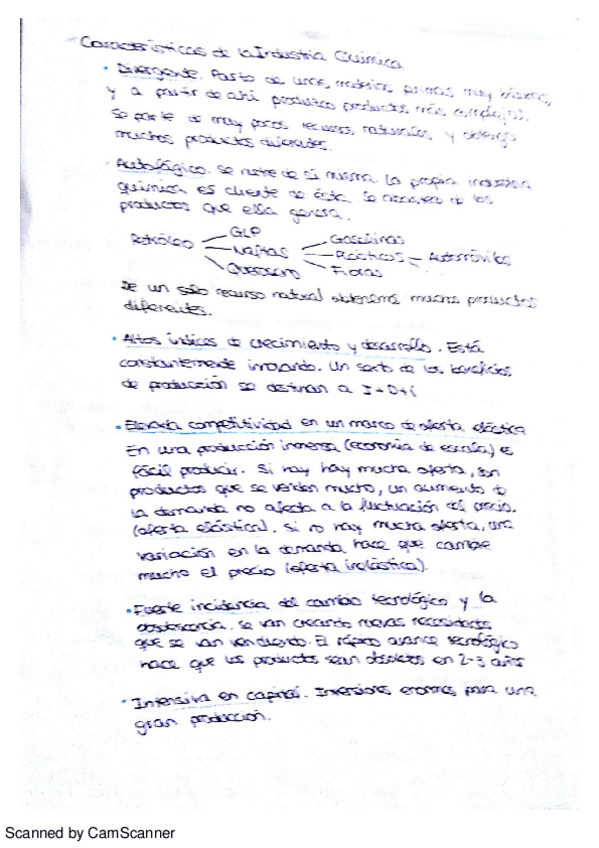 - Características de la Industria Química
• Divergente. Parto de unas materias primas muy básicas,
y a partir de ahí produzco productos más complejos.
Se parte de muy pocos recursos naturales y obtengo
muchos productos diferentes.
• Autofágico. Se nutre de sí misma. La propia industria
química es cliente de ésta. Se necesita de los
productos que ella genera.
Petróleo
GLP
Naftas
Queroseno
Gasolinas
Plásticos - Automóviles
Fibras
De un sólo recurso natural obtenemos muchos productos
diferentes.
• Altos índices de crecimiento y desarrollo. Está
constantemente innovando. Un sexto de los beneficios
de producción se destinan a I+D+i
• Elevada competitividad en un marco de oferta elástica
En una producción inmensa (economía de escala) es
fácil producir. Si hay hay mucha oferta, son
productos que se venden mucho, un aumento de
la demanda no afecta a la fluctuación del precio.
(oferta elástica). Si no hay mucha oferta, una
variación en la demanda hace que cambie
mucho el precio (oferta inelástica).
• Fuerte incidencia del cambio tecnológico y la
obsolescencia. Se van creando nuevas necesidades
que se van vendiendo. El rápido avance tecnológico
hace que los productos sean obsoletos en 2-3 años
• Intensiva en capital. Inversiones enormes para una
gran producción.
Scanned by CamScanner